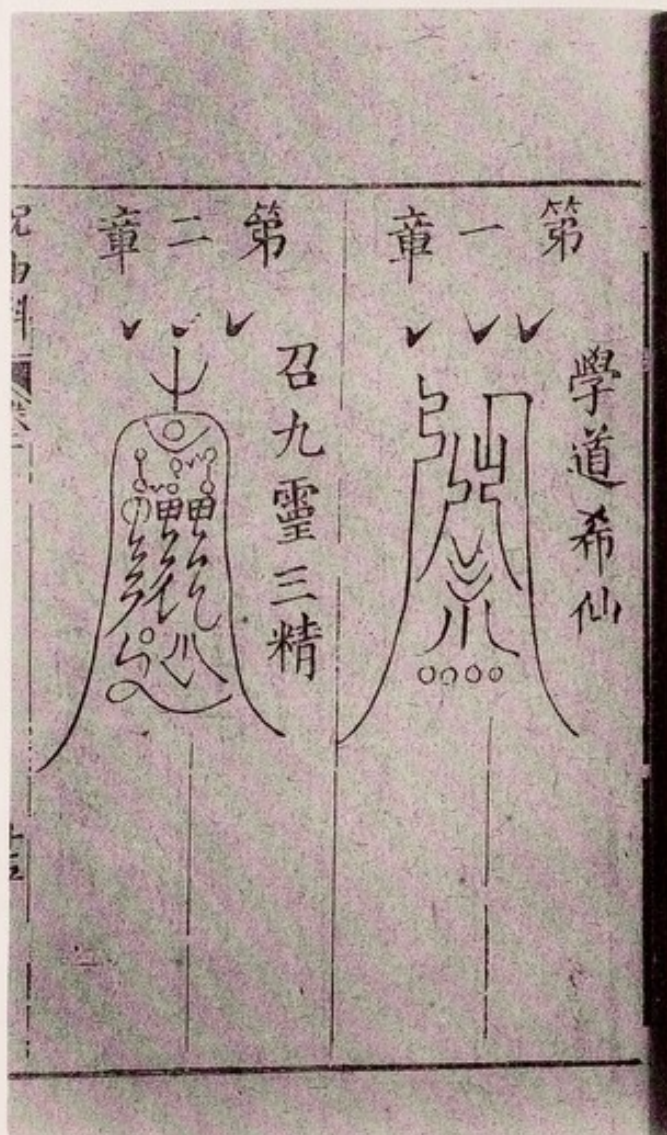 第一章
學道希仙
第二章
召九靈三精
祝由科